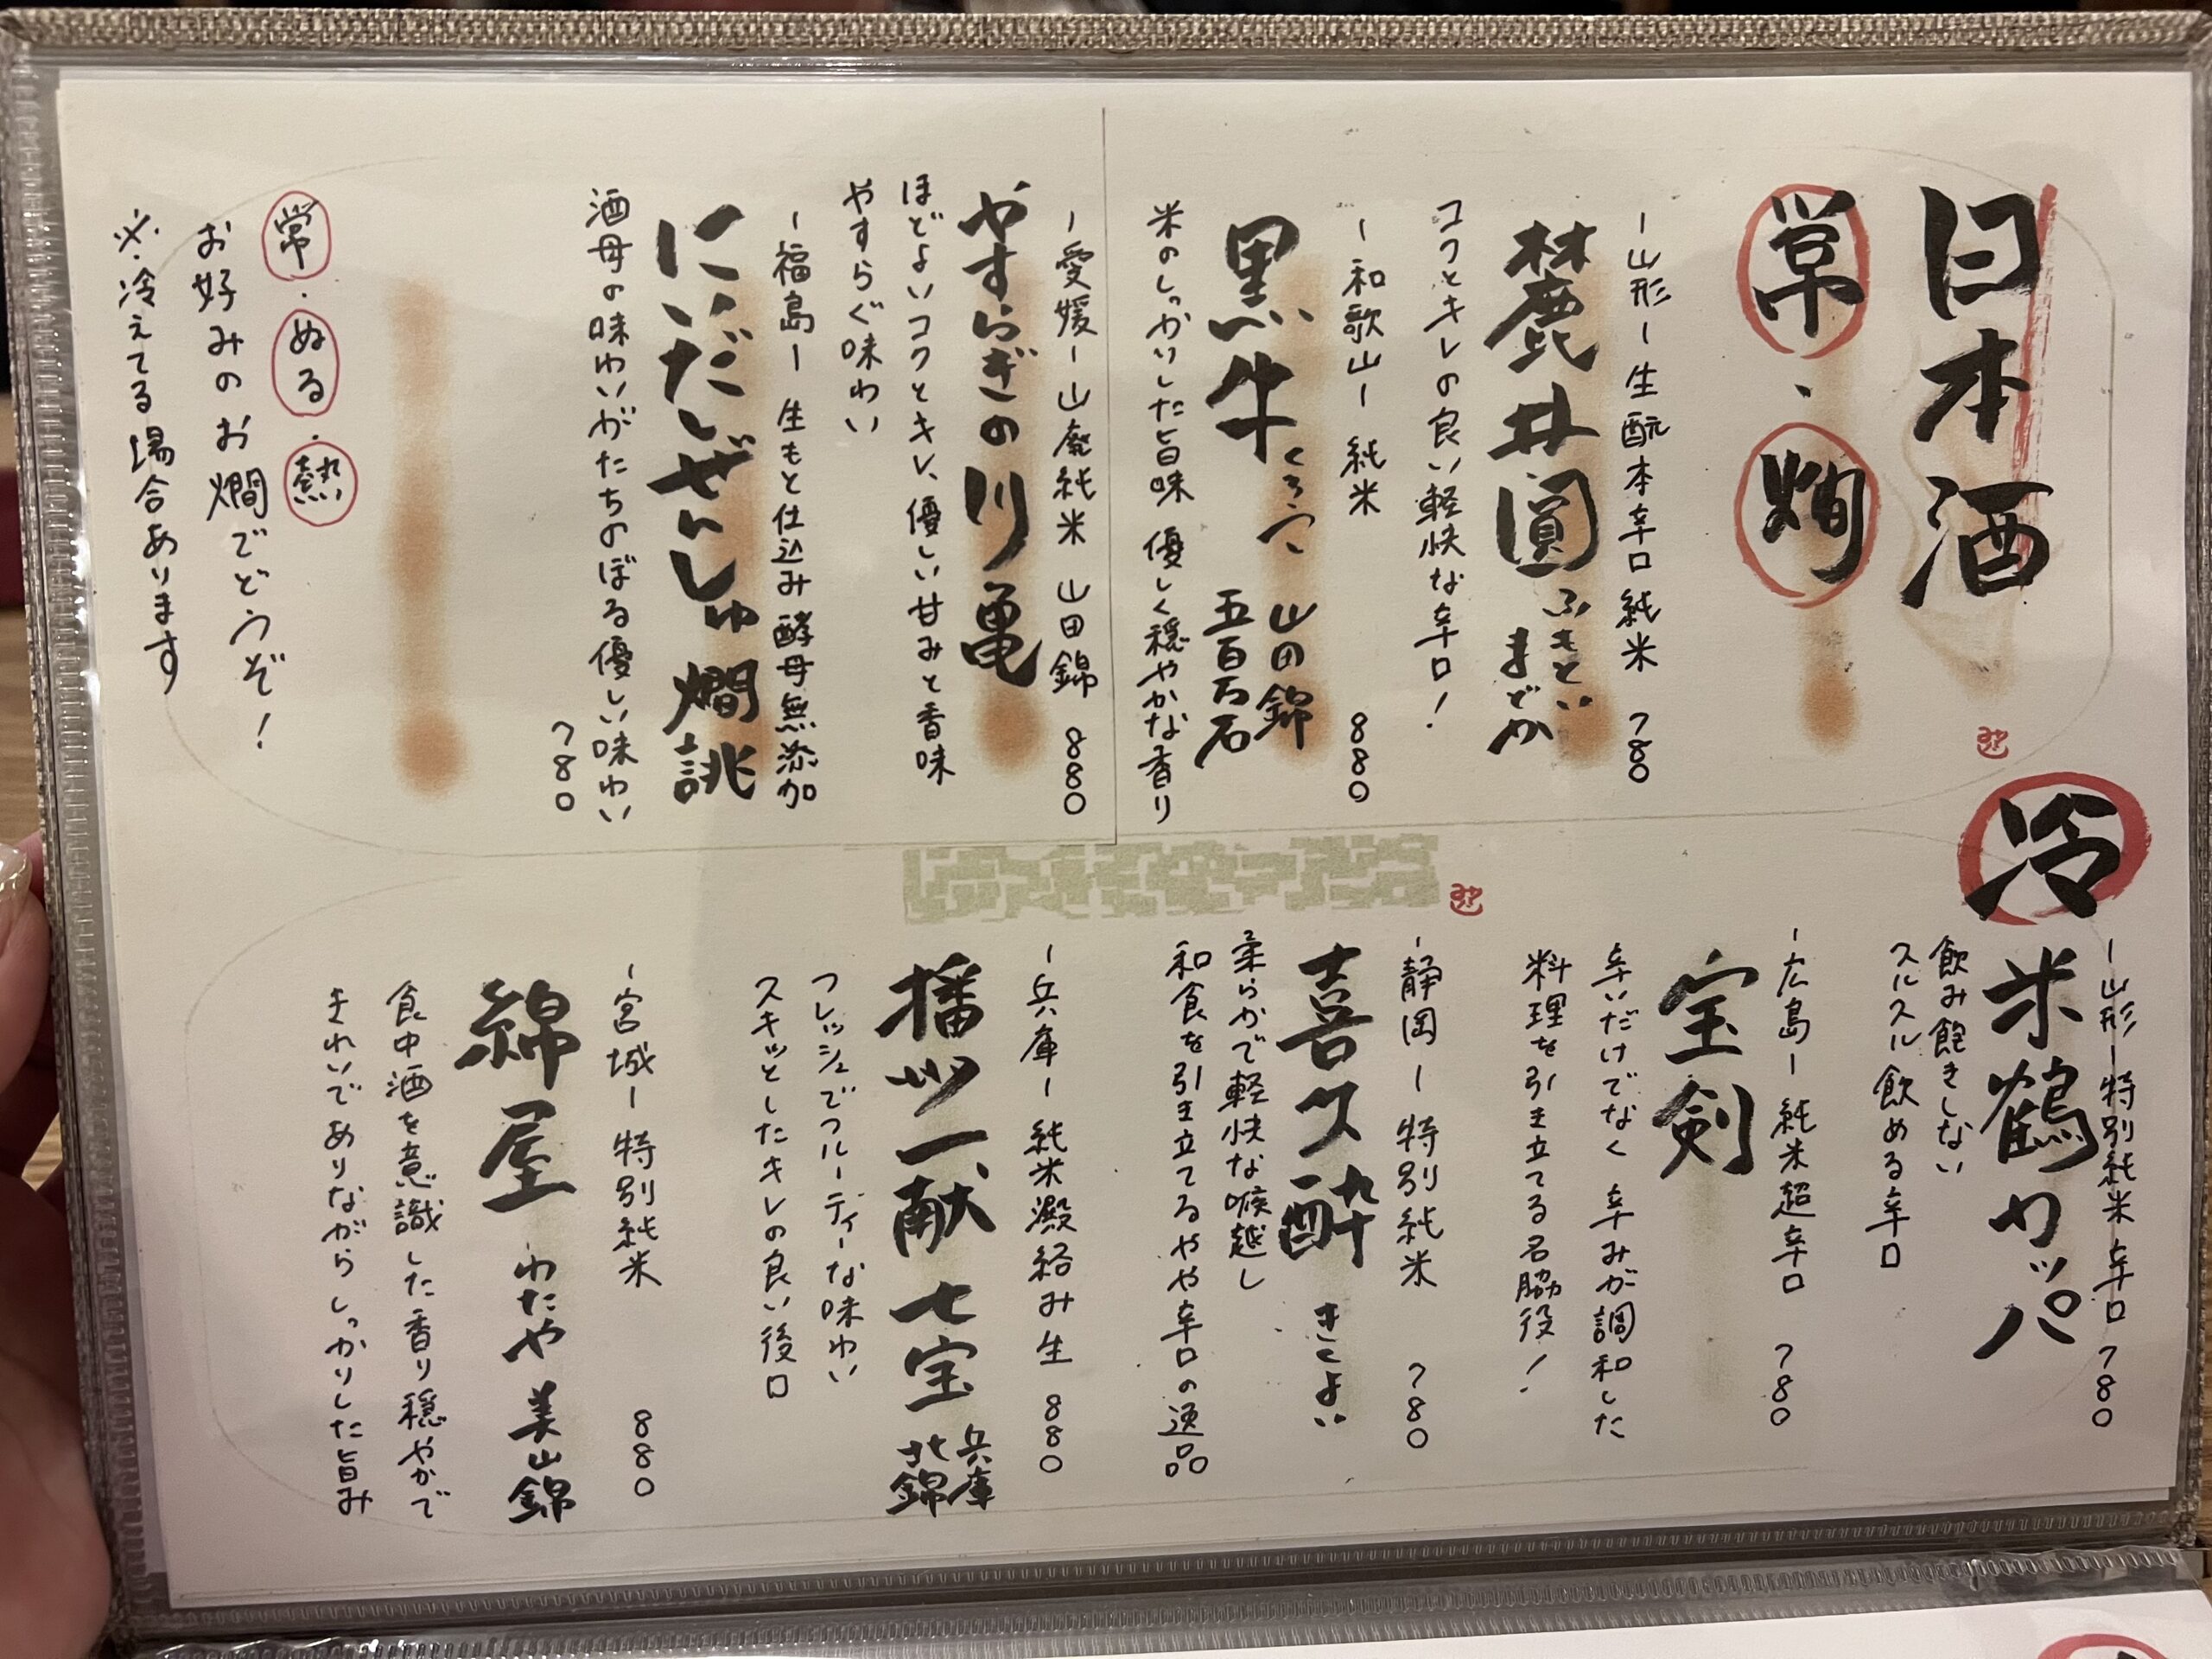 日本酒
常・燗
ー山形ー生酛本辛口純米 780
麓井圓
ふもとい
まどか
コクとキレの良い軽快な辛口！
ー和歌山ー 純米 880
黒牛
くろうし
山田錦
五百万石
米のしっかりした旨味 優しく穏やかな香り
ー愛媛ー山廃純米 山田錦 880
やすらぎの川亀
ほどよいコクとキレ、優しい甘みと香味
やすらぐ味わい
ー福島ー 生もと仕込み酵母無添加
にいだしぜんしゅ 燗誂
酒母の味わいがたちのぼる優しい味わい
780
常・ぬる・熱
お好みのお燗でどうぞ！
※冷えてる場合あります
冷
ー山形ー特別純米 辛口 780
米鶴カッパ
飲み飽きしない
スルスル飲める辛口
ー広島ー純米超辛口 780
宝剣
辛いだけでなく 辛みが調和した
料理を引き立てる名脇役！
ー静岡ー 特別純米 780
喜久酔 きくよい
柔らかで軽快な喉越し
和食を引き立てるやや辛口の逸品
ー兵庫ー 純米澱絡み生 880
播州一献 七宝
兵庫
北錦
フレッシュでフルーティーな味わい
スキッとしたキレの良い後口
ー宮城ー特別純米 880
綿屋 わたや 美山錦
食中酒を意識した香り穏やかで
きれいでありながらしっかりした旨み